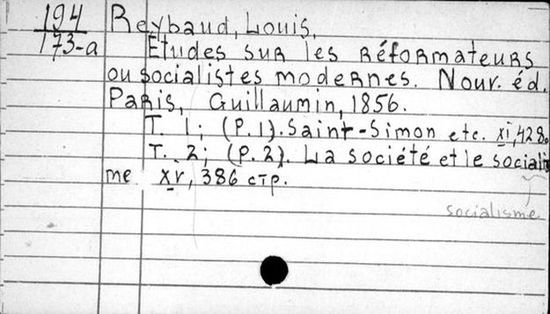 194 Reybaud, Louis,
173-a Études sur les réformateurs
ou socialistes modernes. Nouv. éd.
Paris, Guillaumin, 1856.
T. 1; (P.1). Saint-Simon etc. XI, 428.
T. 2; (P.2). La société et le socialis
me XV, 386 стр.
socialisme